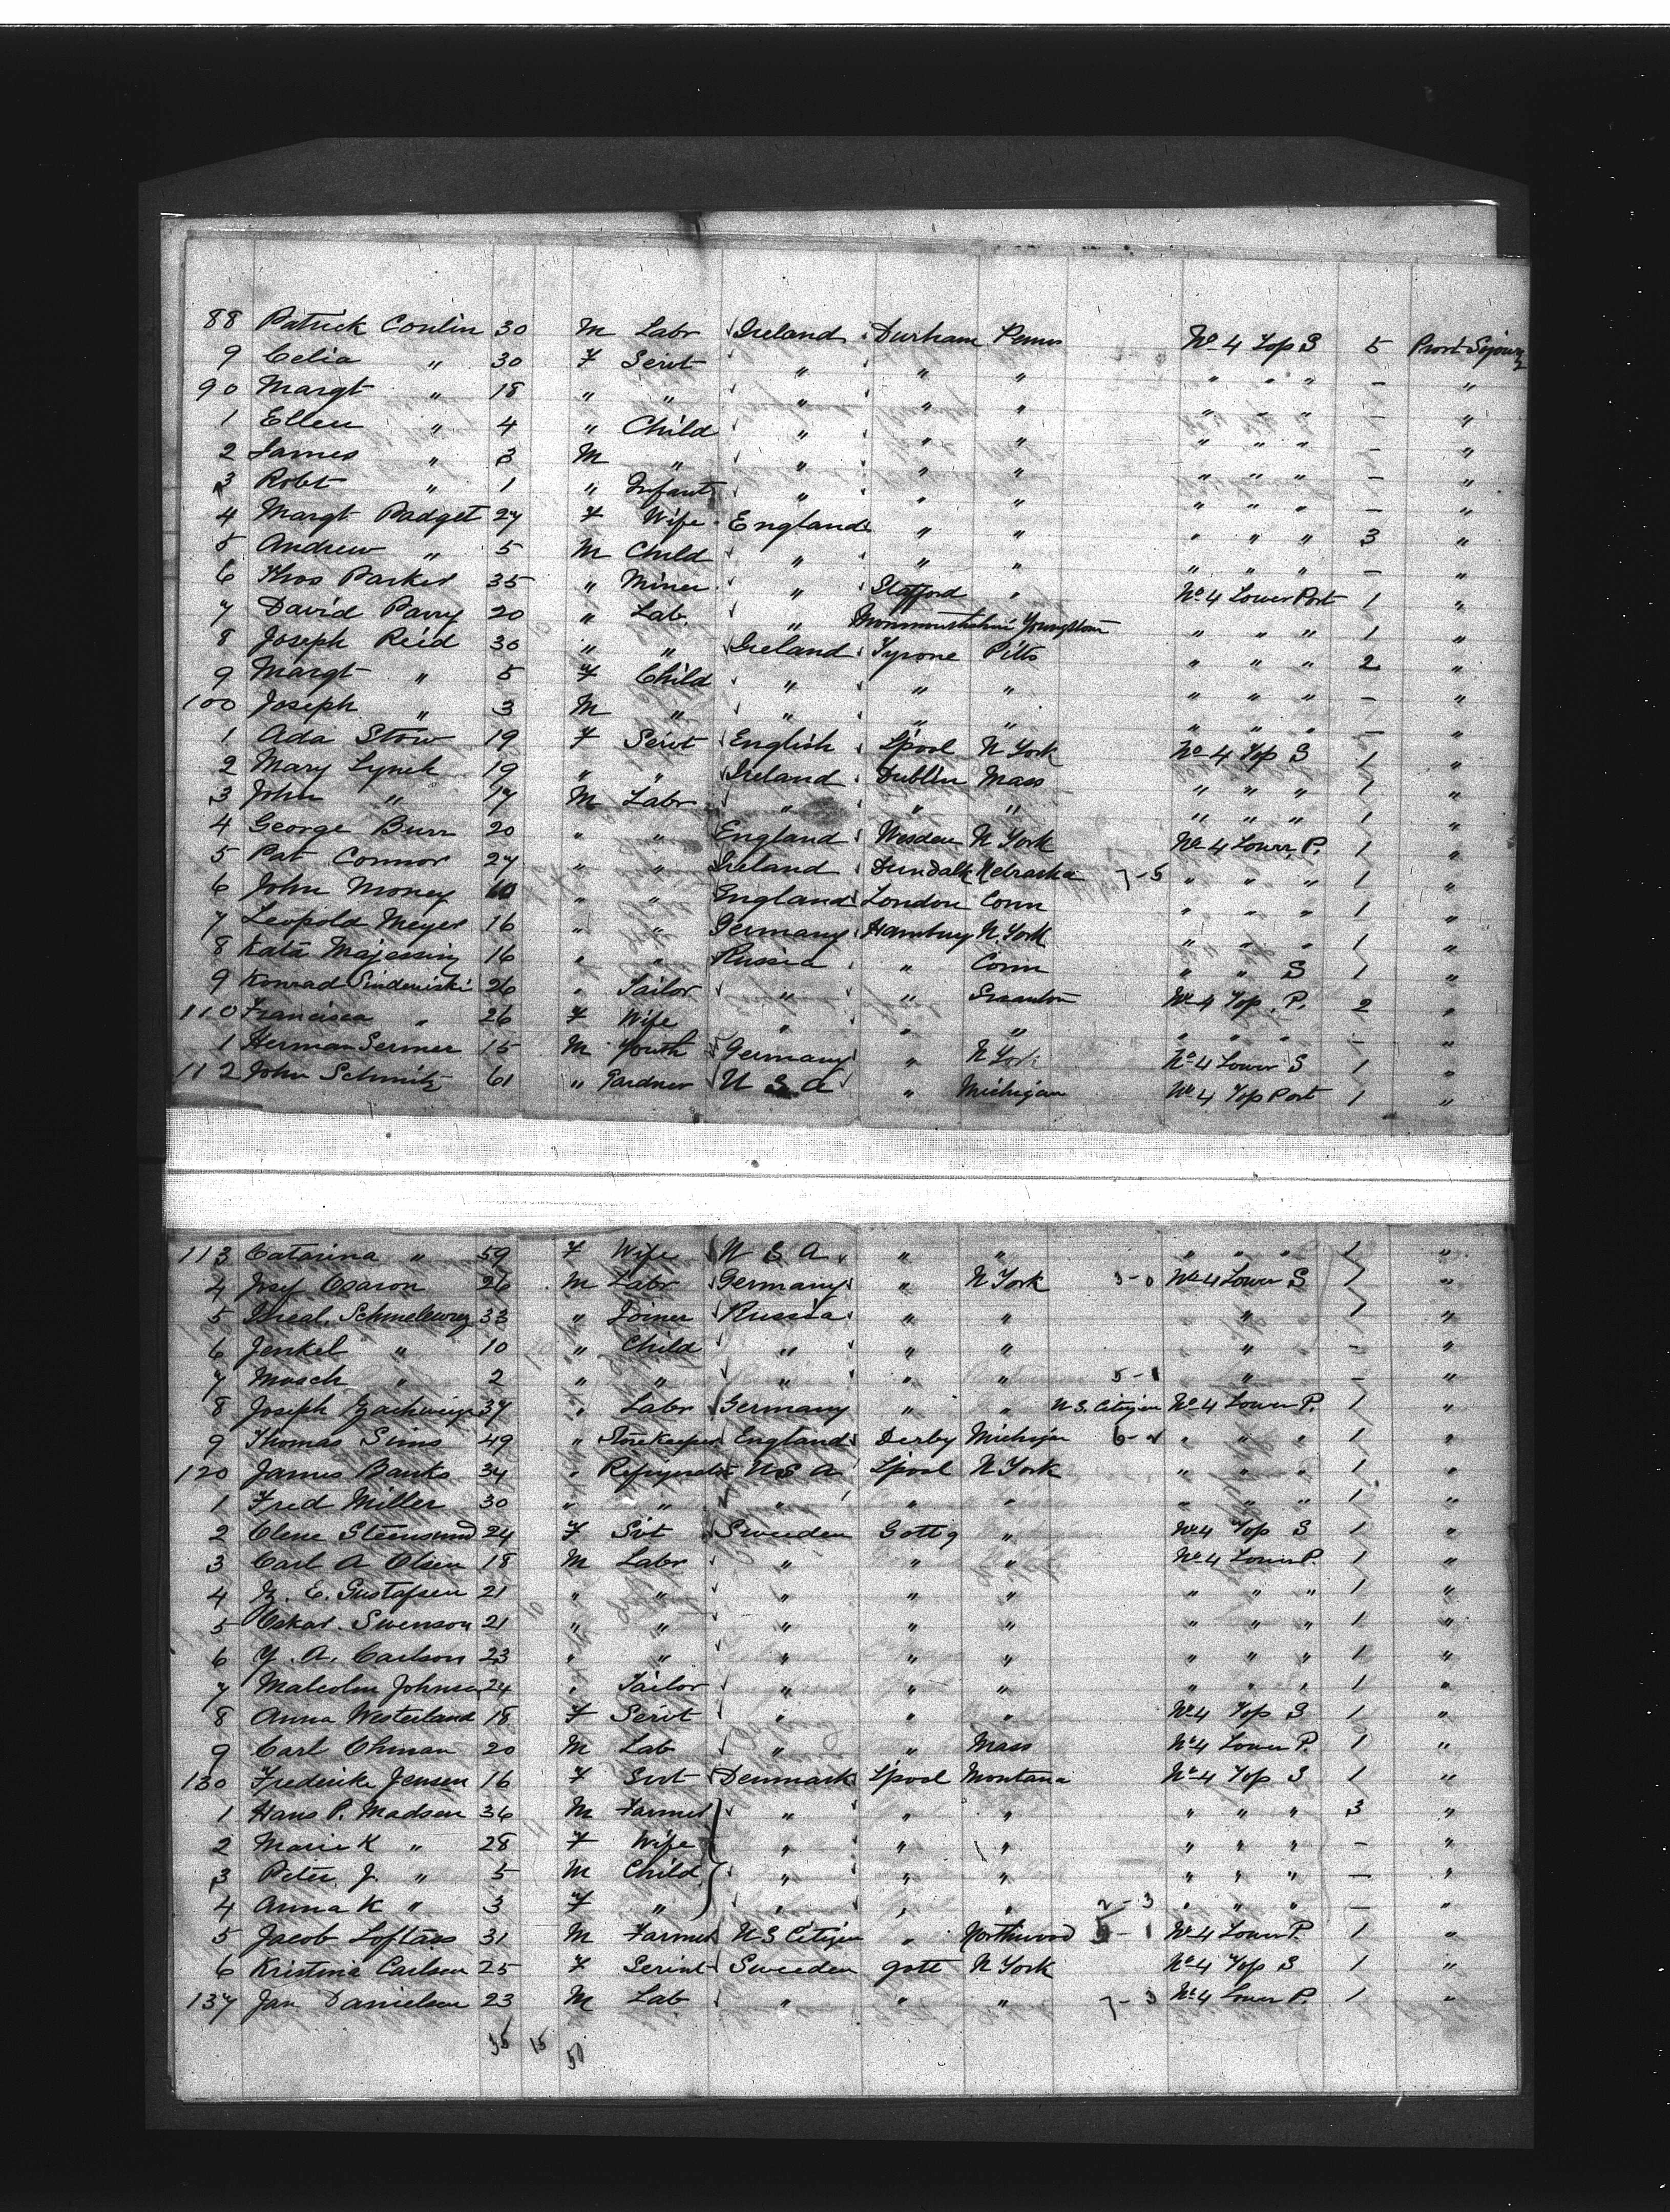 88 Patrick Conlin 30 M Labr Ireland Durham Penns No 4 Top S 5 Prort Sojourn
9 Celia " 30 F Servt " " " " " " - "
90 Margt " 18 " " " " " " " " - "
1 Ellen " 4 " Child " " " " " " - "
2 James " 3 M " " " " " " " - "
3 Robt " 1 " Infant " " " " " " - "
4 Margt Padget 27 F Wife England " " " " " 3 "
5 Andrew " 5 M Child " " " " " " - "
6 Thos Parker 35 " Miner " Stafford " No 4 Lower Port 1 "
7 David Parry 20 " Lab " Monmouthshire Youngstown " " " 1 "
8 Joseph Reid 30 " " Ireland Tyrone Pitts " " " 2 "
9 Margt " 5 F Child " " " " " " - "
100 Joseph " 3 M " " " " " " " - "
1 Ada Stow 19 F Servt English Lpool N York No 4 Top S 1 "
2 Mary Lynch 19 " " Ireland Dublin Mass " " " 1 "
3 John " 17 M Labr " " " " " " 1 "
4 George Burr 20 " " England N York No 4 Lowr P. 1 "
5 Pat Connor 27 " " Ireland Dundalk Nebraska 7-5 " " " 1 "
6 John Money " " England London Conn " " " 1 "
7 Leopold Meyer 16 " " Germany Hamburg N. York " " " 1 "
8 Kata Majessing 16 " " Russia " Conn " " S 1 "
9 Konrad 26 " Tailor " " Scranton No 4 Top P. 2 "
110 Francisca " 26 F Wife " " " " " " - "
1 Herman Sermer 15 M Youth Germany " N York No 4 Lower S 1 "
112 John Schmitz 61 " Gardner U S A " Michigan No 4 Top Port 1 "
113 Catarina " 59 F Wife U S A " " " " " 1 "
4 Josef 26 M Labr Germany " N York 3-0 No 4 Lower S 1 "
5 33 " Joiner Russia " " " 1 "
6 Jenkel " 10 " Child " " " " " " - "
7 Mosch " 2 " " " " " 5-1 " - "
8 Joseph 37 " Labr Germany " " U.S. Citizen No 4 Lower P. 1 "
9 Thomas Sims 49 " Storekeeper England Derby Michigan " " " 1 "
120 James Banks 34 " U S A Lpool N York " " " 1 "
1 Fred Miller 30 " " " " " " " " 1 "
2 Olene Steensund 24 F Svt Sweden Gottg " No 4 Top S 1 "
3 Carl A Olsen 18 M Labr " " " No 4 Lower P. 1 "
4 E. Gustafsen 21 " " " " " " " " 1 "
5 Oskar Swenson 21 " " " " " " " " 1 "
6 Y. A. Carlson 23 " " " " " " " " 1 "
7 Malcolm Johnson 24 " Tailor " " " " " " 1 "
8 Anna Westerland 18 F Servt " " " No 4 Top S 1 "
9 Carl Ohman 20 M Lab " " Mass No 4 Lower P. 1 "
130 Frederike Jensen 16 F Svt Denmark Lpool Montana No 4 Top S 1 "
1 Hans P. Madsen 36 M Farmer " " " " " " 3 "
2 Marie K " 28 F Wife " " " " " " - "
3 Peter J. " 5 M Child " " " " " " - "
4 Anna K " 3 F " " " " 2-3 " " " - "
5 Jacob Loftaas 31 M Farmer U S Citizen " Northwood No 4 Lower P. 1 "
6 Kristina Carlson 25 F Servnt Sweden Gott N York No 4 Top S 1 "
137 Jan Danielson 23 M Lab " " " 7-3 No 4 Lower P. 1 "
35 15 50